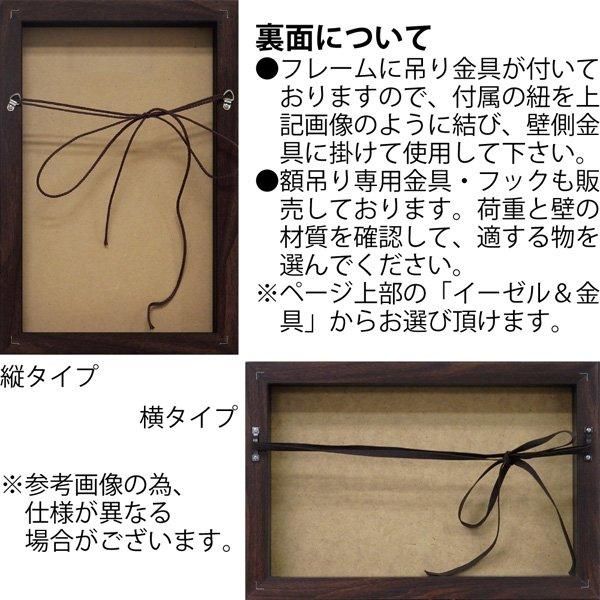 裏面について
●フレームに吊り金具が付いて
おりますので、付属の紐を上
記画像のように結び、壁側金
具に掛けて使用して下さい。
●額吊り専用金具・フックも販
売しております。荷重と壁の
材質を確認して、適する物を
選んでください。
※ページ上部の「イーゼル＆金
具」からお選び頂けます。
縦タイプ
横タイプ
※参考画像の為、
仕様が異なる
場合がございます。